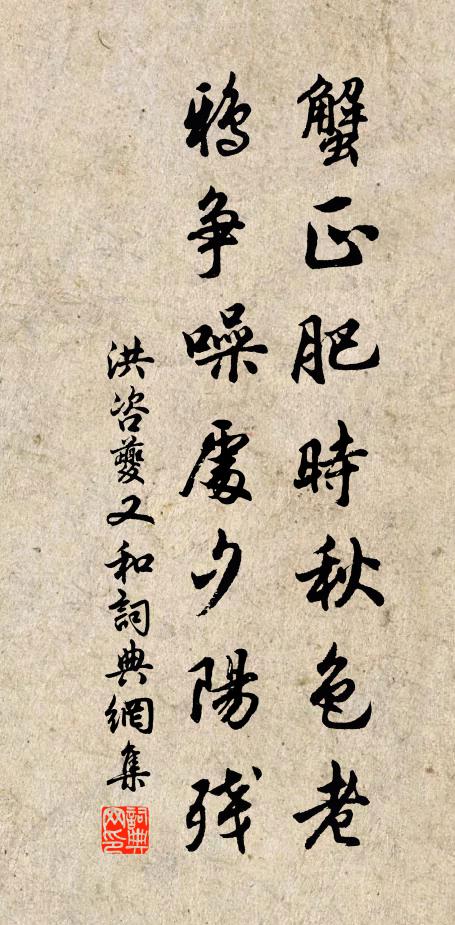 蟹正肥時秋色老
鴉争噪處夕陽残
洪咨夔又和詞典網集
詞典網印